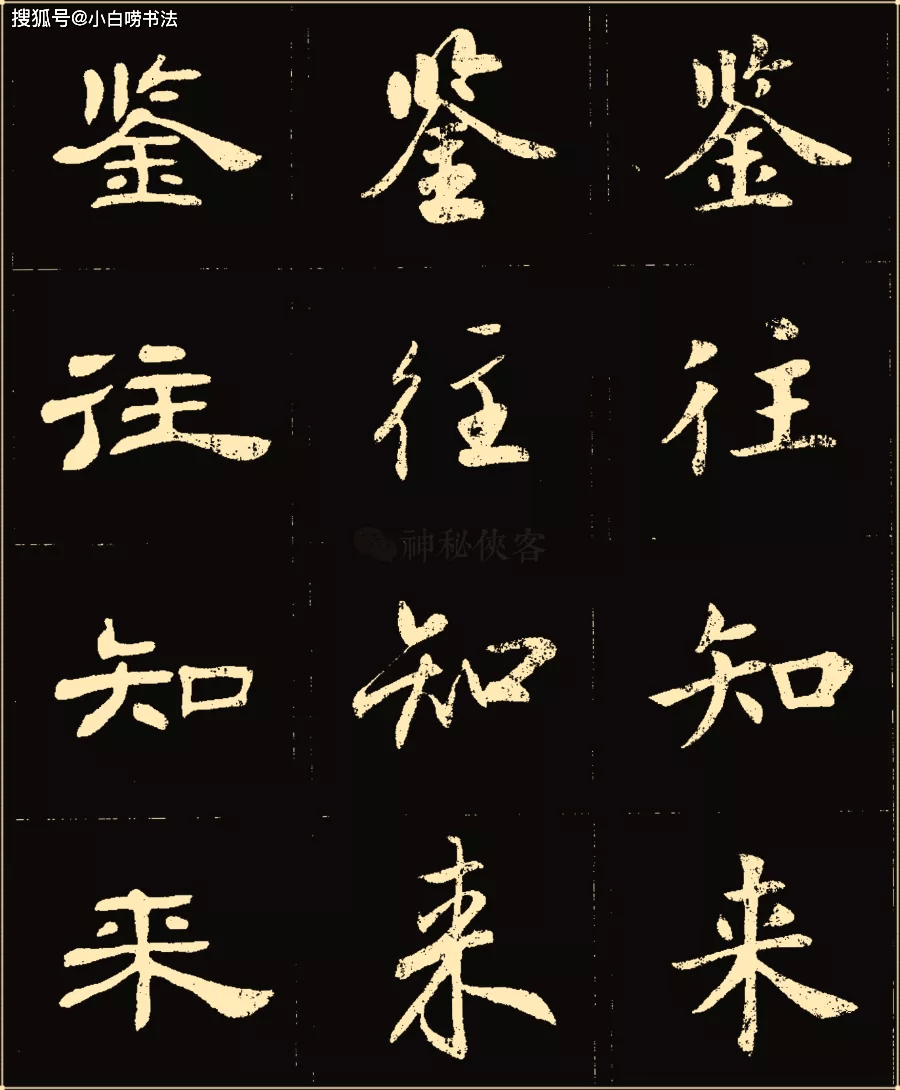 搜狐号@小白唠书法
鉴 鉴 鉴
往 往 往
神秘侠客
知 知 知
来 来 来